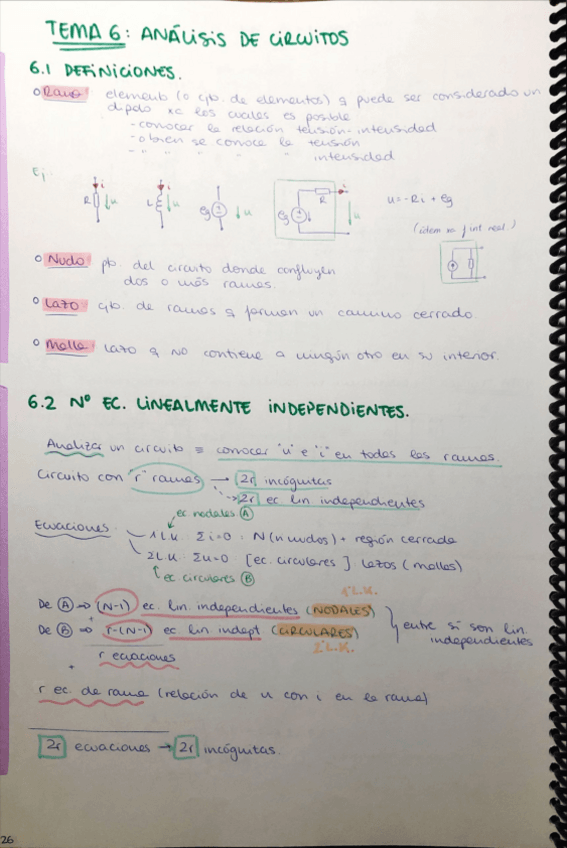 TEMA 6: ANÁLISIS DE CIRCUITOS
6.1 DEFINICIONES.
○ Rama elemento (o cjto. de elementos) q puede ser considerado un
dipolo xa los cuales es posible
- conocer la relación tensión-intensidad
- o bien se conoce la tensión
- " " " " " intensidad
Ej.
R i u
L i u
eg u
eg R i u
u = -Ri + eg
(idem xa f int real)
○ Nudo pto. del circuito donde confluyen
dos o más ramas.
○ Lazo cjto. de ramas q forman un camino cerrado.
○ Malla lazo q NO contiene a ningún otro en su interior.
6.2 Nº EC. LINEALMENTE INDEPENDIENTES.
Analizar un circuito ≡ conocer "u" e "i" en todas las ramas.
Circuito con "r" ramas → 2r incógnitas
→ 2r ec lin independientes
ec nodales Ⓐ
Ecuaciones 1 L.K. Σi=0 : N (n nudos) + región cerrada
2 L.K. Σu=0 [ec. circulares]. Lazos (mallas)
ec. circulares Ⓑ
1ª L.K.
De Ⓐ ⇒ (N-1) ec. lin. independientes (NODALES)
+
De Ⓑ ⇒ r-(N-1) ec lin. indept (CIRCULARES)
2ª L.K.
entre sí son lin.
independientes
r ecuaciones
+
r ec. de rama (relación de u con i en la rama)
2r ecuaciones → 2r incógnitas.
26